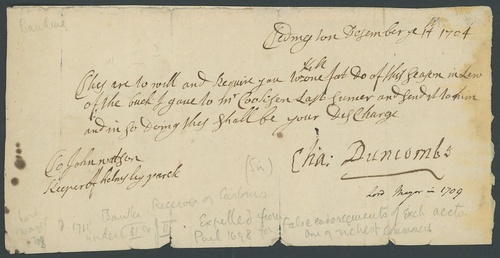 Banking
Tedington Desember ye 14 1704
Thes are to will and Require you to kill one fat Do of this season in Lew
of the buck I gave to Mr Cooksen Last sumer and send it to him
and in so Doing thes shall be your DisCharge
To John Wattson
Keeper of helmsley parck
(Sir)
Cha: Duncombe
Lord Mayor in 1709
Lord
Banker Receiver of Customs
under
Expelled from
Parlt 1698 for false endorsements of Exch
one of richest commoners